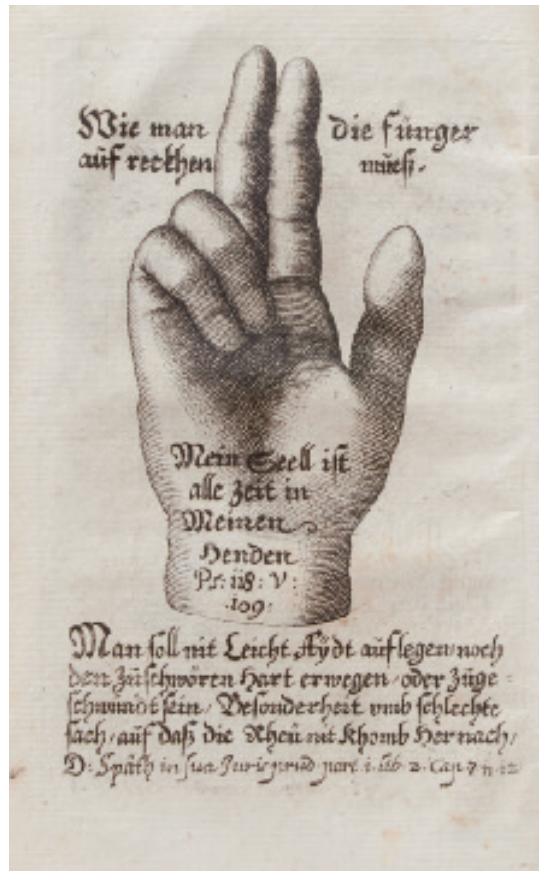 Wie man die fünger
auf reckhen mueß.
Mein Seell ist
alle zeit in
Meinen
Henden
Ps: 118: V:
109.
Man soll nit Leicht Aÿdt auflegen, noch
den Zuschwören Hart erwegen, oder Züge-
schwindt sein, Besonderheit umb schlechte
sach, auf daß die Rheü nit Khomb Hernach,
D: Späth in sua Jurisprud part. i. lib. 2. Cap. 7 n. 12